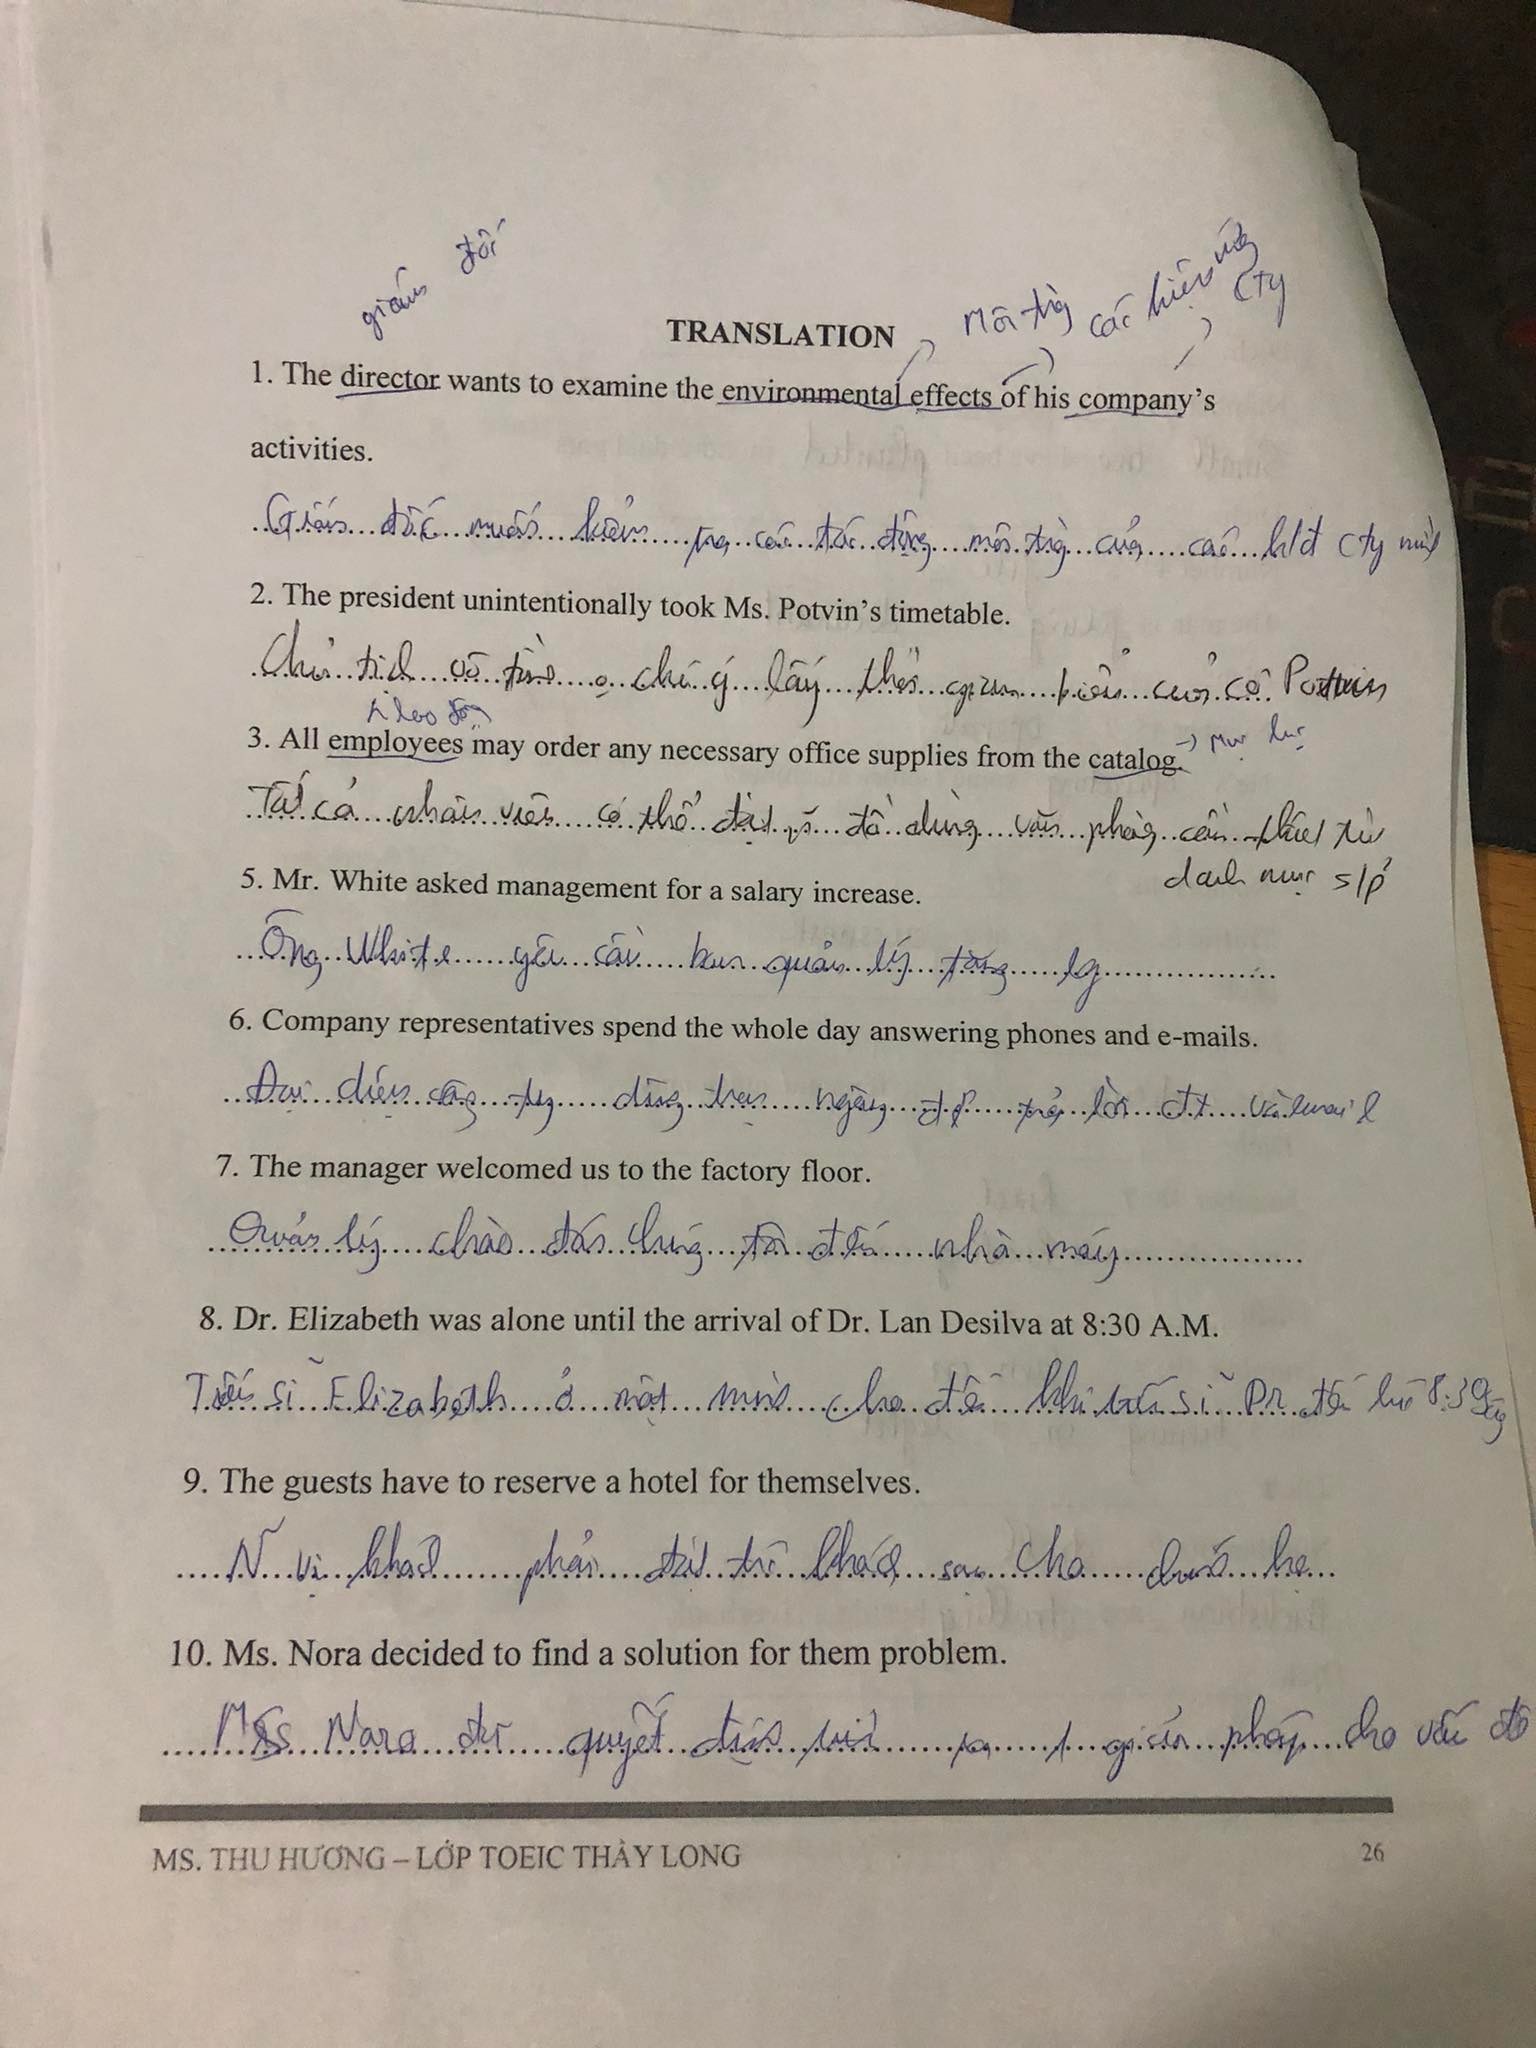 giám đốc
Môi tng các hiệu ứng
cty
TRANSLATION
1. The director wants to examine the environmental effects of his company's
activities.
Giám đốc muốn kiểm tra các tác động môi tng của các hđ cty mình
2. The president unintentionally took Ms. Potvin's timetable.
Chủ tịch vô tình chú ý lấy thời gian biểu của cô Potvin
lao động
3. All employees may order any necessary office supplies from the catalog. → Mục lục
Tất cả nhân viên có thể đặt đồ dùng văn phòng cần thiết từ
danh mục s/p
5. Mr. White asked management for a salary increase.
Ông White yêu cầu ban quản lý tăng lg
6. Company representatives spend the whole day answering phones and e-mails.
Đại diện công ty dùng trọn ngày để trả lời đt và email
7. The manager welcomed us to the factory floor.
Quản lý chào đón chúng tôi đến nhà máy
8. Dr. Elizabeth was alone until the arrival of Dr. Lan Desilva at 8:30 A.M.
Tiến sĩ Elizabeth ở một mình cho đến khi tiến sĩ Dr đến lúc 8:30 sáng
9. The guests have to reserve a hotel for themselves.
N~ vị khách phải đặt trc khách sạn cho chính họ
10. Ms. Nora decided to find a solution for them problem.
Mss Nara đã quyết định tìm ra 1 giải pháp cho vấn đề
MS. THU HƯƠNG – LỚP TOEIC THẦY LONG
26